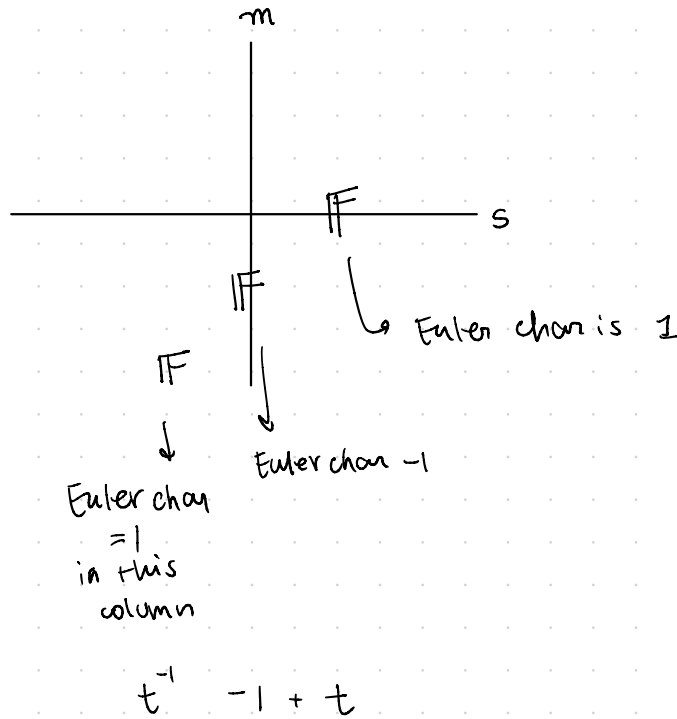 m
𝔽 s
𝔽
Euler char is 1
𝔽
Euler char -1
Euler char
=1
in this
column
t⁻¹ -1 + t